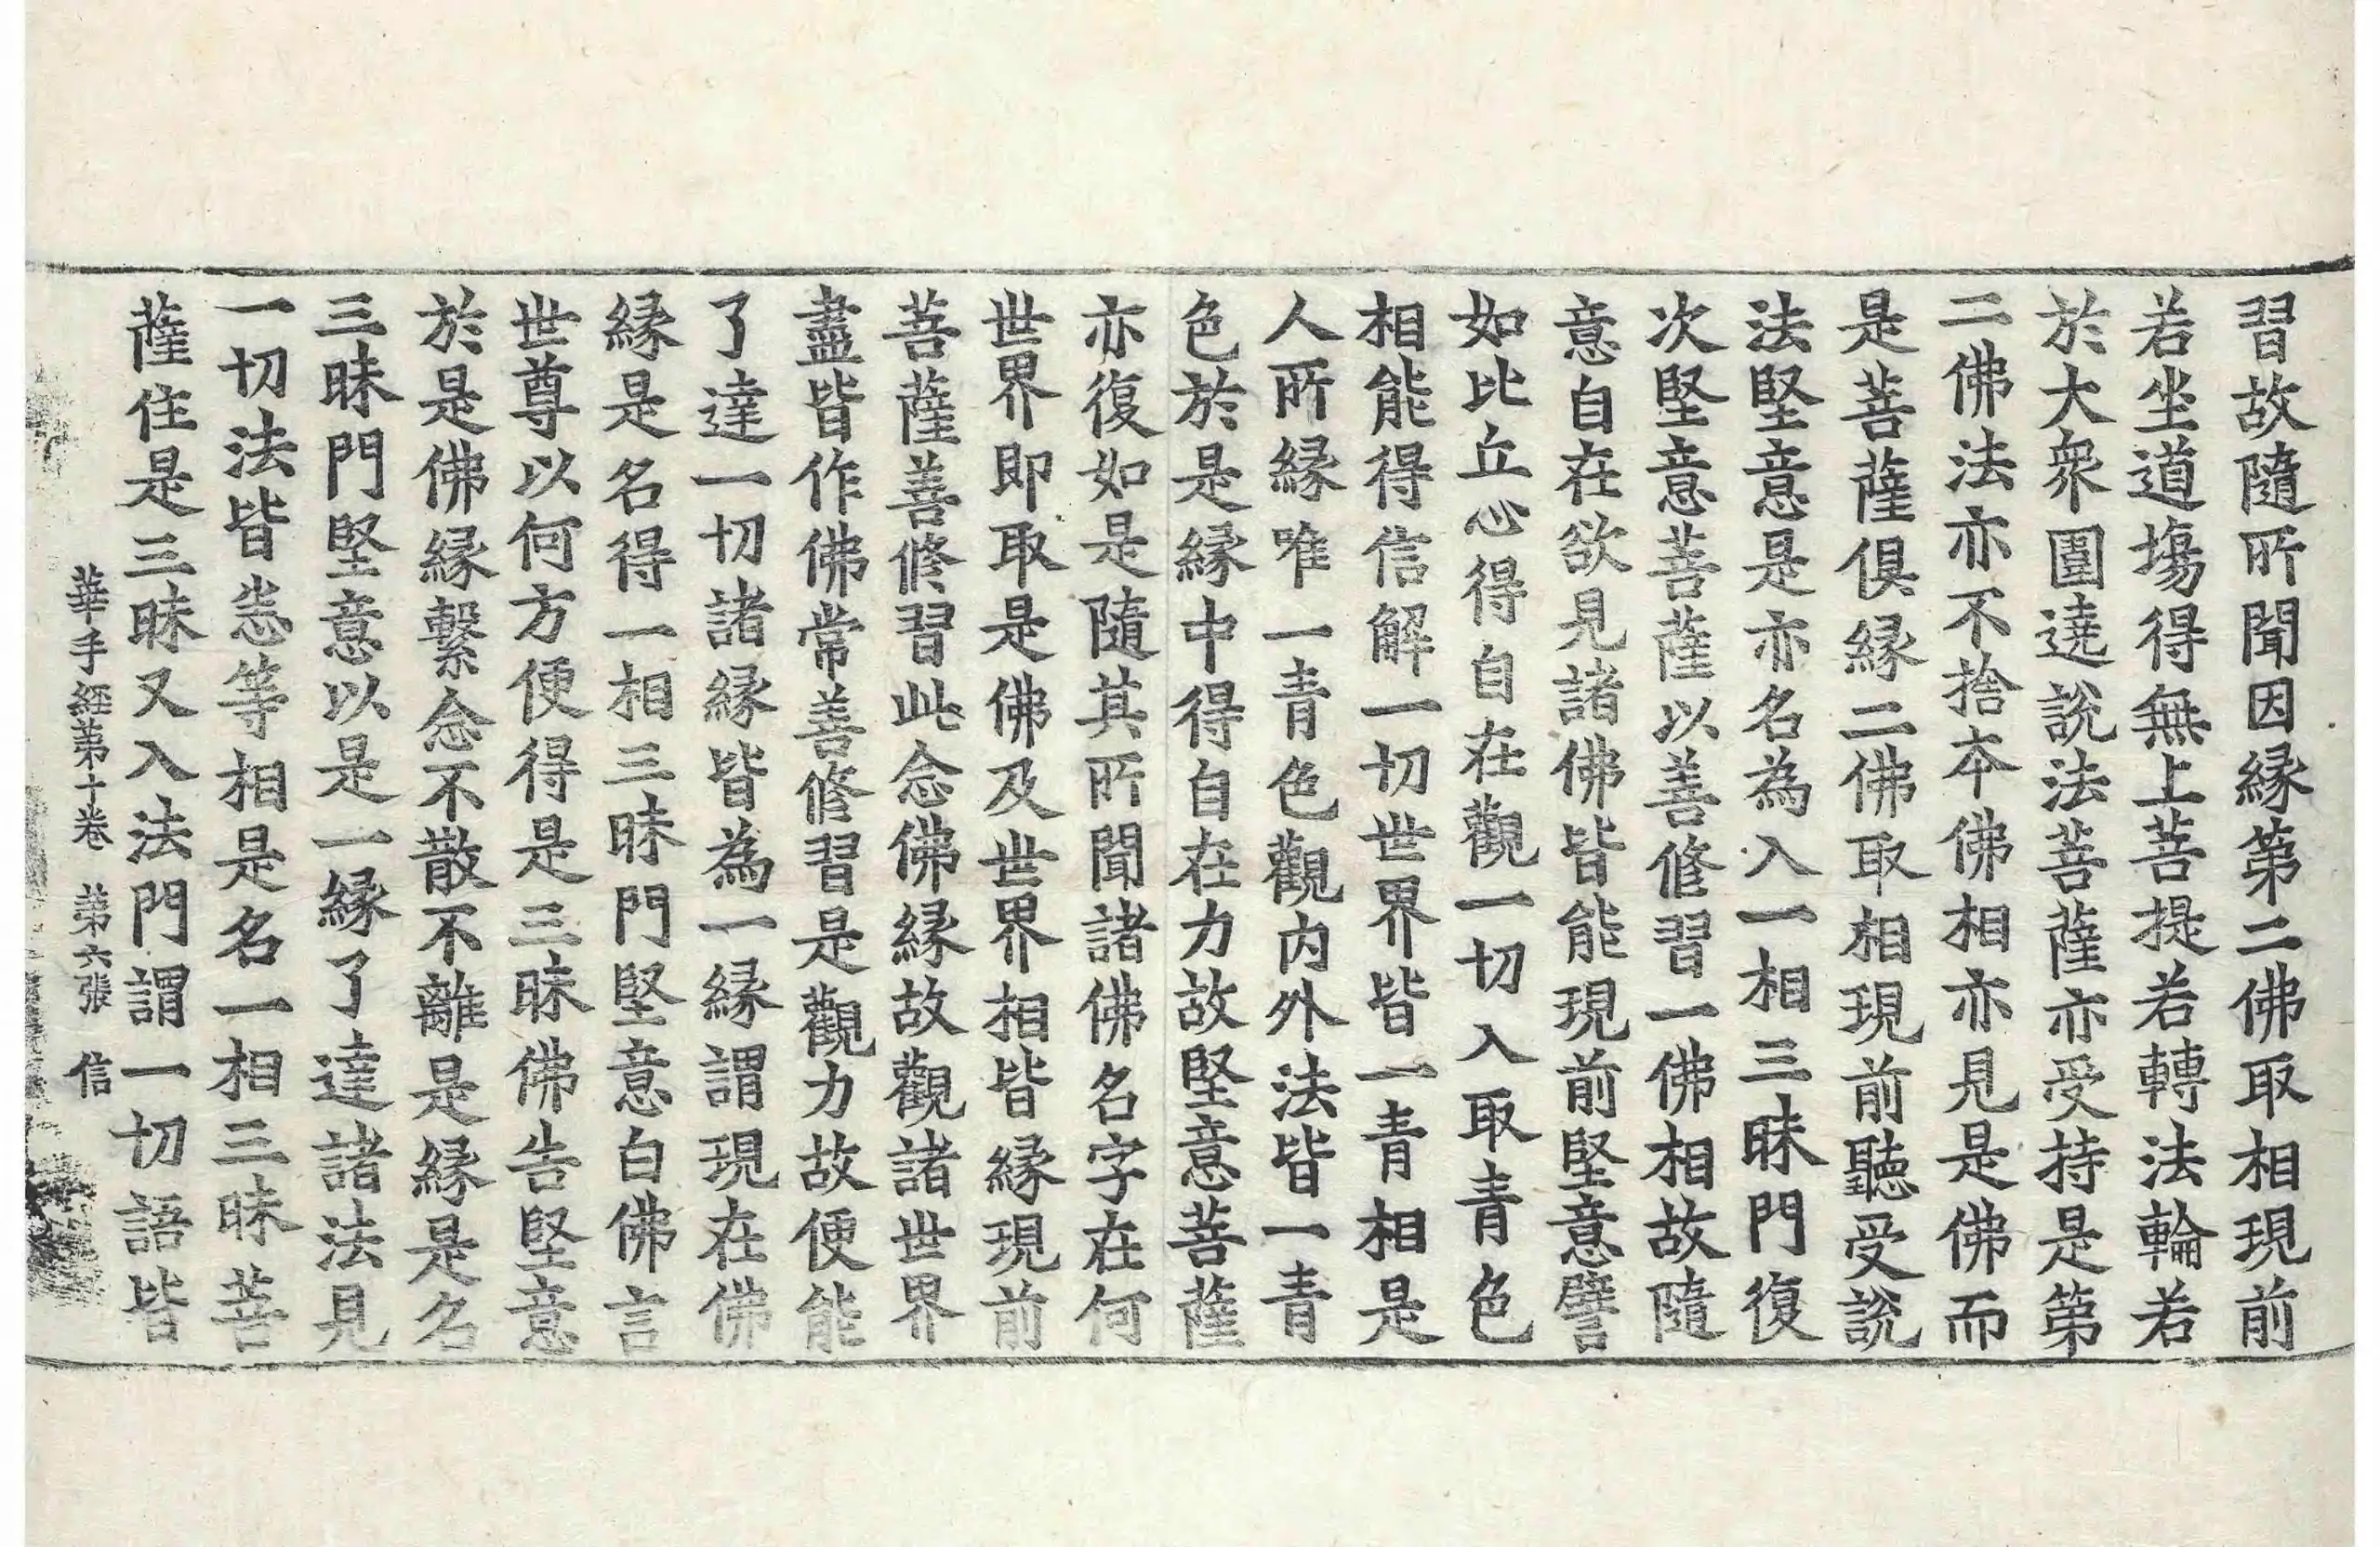 習故隨所聞因緣第二佛取相現前
若坐道場得無上菩提若轉法輪若
於大衆圍遶說法菩薩亦受持是第
二佛法亦不捨本佛相亦見是佛而
是菩薩俱緣二佛取相現前聽受說
法堅意是亦名為入一相三昧門復
次堅意菩薩以善修習一佛相故隨
意自在欲見諸佛皆能現前堅意譬
如比丘心得自在觀一切入取青色
相能得信解一切世界皆一青相是
人所緣唯一青色觀內外法皆一青
色於是緣中得自在力故堅意菩薩
亦復如是隨其所聞諸佛名字在何
世界即取是佛及世界相皆緣現前
菩薩善修習此念佛緣故觀諸世界
盡皆作佛常善修習是觀力故便能
了達一切諸緣皆為一緣謂現在佛
緣是名得一相三昧門堅意白佛言
世尊以何方便得是三昧佛告堅意
於是佛緣繫念不散不離是緣是名
三昧門堅意以是一緣了達諸法見
一切法皆悉等相是名一相三昧菩
薩住是三昧又入法門謂一切語皆
華手經第十卷 第六張 信